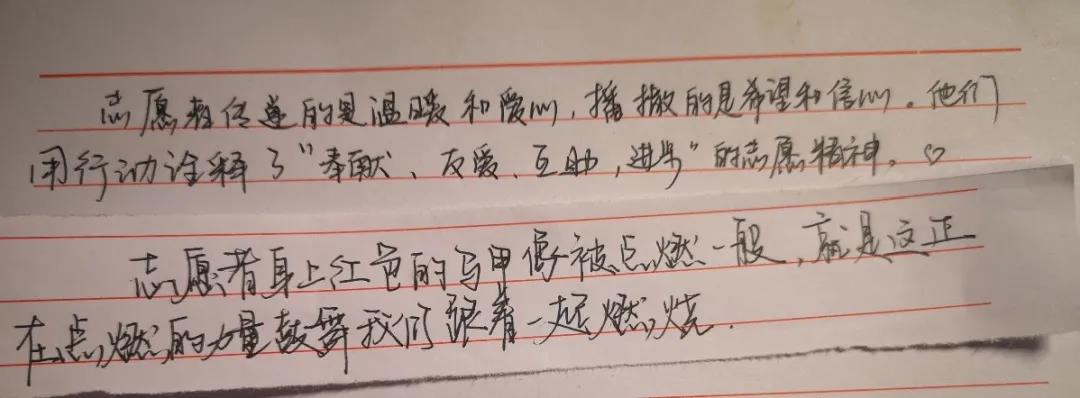 志愿者传递的是温暖和爱心，播撒的是希望和信心。他们
用行动诠释了“奉献、友爱、互助，进步”的志愿精神。♡
志愿者身上红色的马甲像被点燃一般，就是这正
在点燃的力量鼓舞我们跟着一起燃烧.